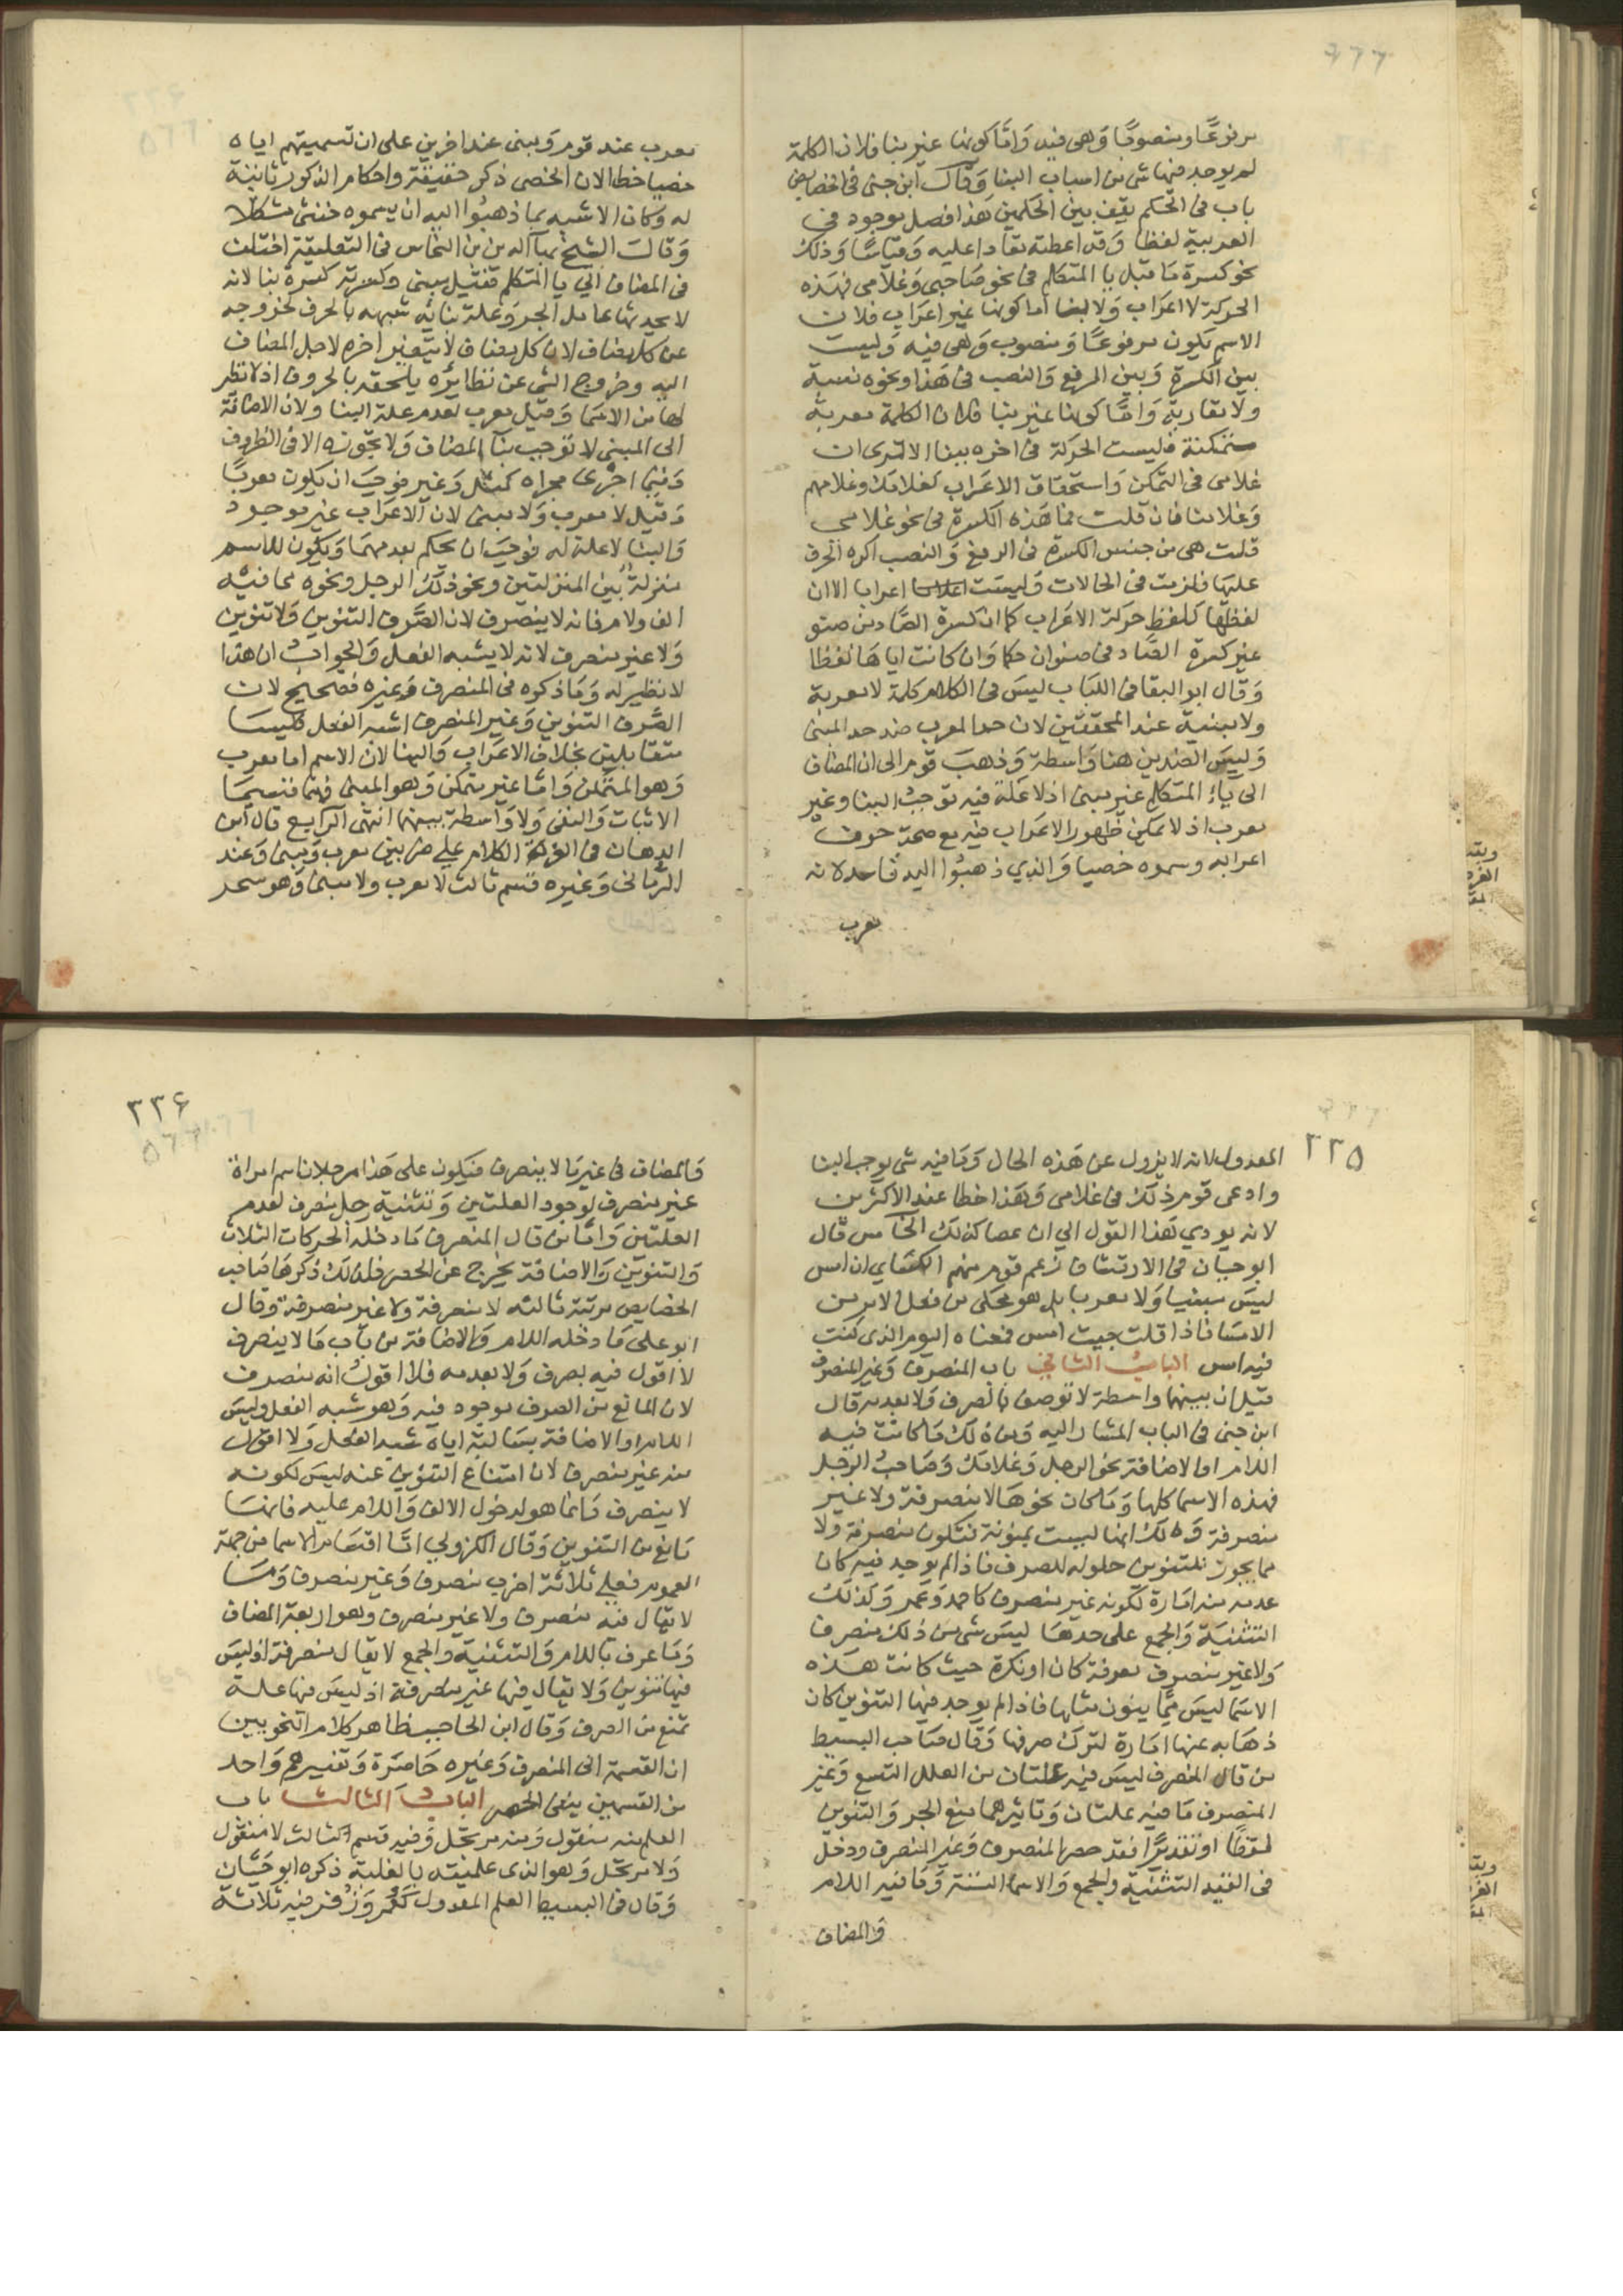 مرفوعًا ومنصوبًا وَهى فيه وَامّا كونها غير بنا فلان الكلمة
لم يوجد فيها شى من اسباب البنا وَقال ابن جنى فى الخصايص
باب فى الحكم يقف بين الحكمين هَذا فصل موجود فى
العربية لفظا وَقد اعطته مقادا عليه وَقياسًا وَذلك
نحو كسرة مَا قبل يا المتكلم فى نحو صَاحبى وَغلامى فهَذه
الحركة لا اعراب وَلا بنا اما كونها غير اعراب فلان
الاسم يكون مرفوعًا وَمنصوب وَهى فيه وَليست
بين الكسرة وَبين الرفع وَالنصب فى هَذا ونحوه نسبة
ولا مقاربة وَامّا كونها غير بنا فلان الكلمة معربة
متمكنة فليست الحركة فى اخره ببنا الا ترى ان
غلامى فى التمكن وَاستحقاق الاعَراب كغلامك وغلامهم
وَغلامنا فان قلت فما هَذه الكسرة فى نحو غلامى
قلت هى من جنس الكسرة فى الرفع وَالنصب اكره الحرف
عليها فلزمت فى الحالات وَليسَت اعرابا الا ان
لفظها كلفظ حركة الاعَراب كما ان كسرة الصَّاد من صنو
غير كسرة الصَّاد فى صنوان حكما وَان كانت اياها لفظا
وَقال ابو البقا فى اللبَاب ليسَ فى الكلام كلمة لا معربة
ولا مبنية عند المحققين لان حد المعرب ضد حد المبنى
وَليسَ الضدين هنا وَاسطة وَذهبَ قوم الى ان المضاف
الى يَاء المتكلم غير مبنى اذ لا علَة فيه توجبُ البنا وغير
معرب اذ لا يمكن ظهور الاعَراب فيه مع صحة حرف
اعرابه وسموه خصيا وَالذي ذهبُوا اليه فاسد لانه
معرب
معرب عند قوم وَمبنى عند اخرين على ان تسميتهم اياه
خصيا خطا لان الخصى ذكر حقيقة واحكام الذكور ثابتة
له وَكان الاشبه بما ذهبُوا اليه ان يسموه خنثى مشكلا
وَقالَ الشيخ بهآ الدين بن النحاس فى التعليقة اختلف
فى المضاف الي يا المتكلم فقيل مبنى وكسرته كسرة بنا لانه
لا يحدثها عامل الجر وَعلة بنائه شبهه بالحرف لخروجه
عن كل مضاف لان كل مضاف لا يتغير اخره لاجل المضاف
اليه وخروج الشى عن نظائره يلحقه بالحروف اذ لا نظير
لها من الاسَما وَقيل معرب لعدم علة البنا ولان الاضافة
الى المبنى لا توجب بنآ المضاف وَلا تجوزه الا فى الظروف
وَفيما اجرى مجراه كمثل وَغير فوجَبَ ان يكون معربًا
وَقيل لا معرب وَلا مبنى لان الاعَراب غير موجود
وَالبنا لا علة له فوجَبَ ان يحكم بعدمهمَا وَيكون للاسم
منزلة بين المنزلتين ونحو ذلك الرجل ونحوه مما فيه
الف ولام فانه لا ينصرف لان الصَّرف التنوين وَلا تنوين
وَلا غير منصرف لانه لا يشبه الفعل وَالجوابُ ان هذا
لا نظير له وَمَا ذكروه فى المنصرف وَغيره فصحيح لان
الصَّرف التنوين وَغير المنصرف اشبه الفعل فليسَا
متقابلين بخلاف الاعَراب وَالبنا لان الاسم اما معرب
وَهو المتمكن وَامّا غير متمكن وَهو المبنى فهما قسيمَا
الاثبات وَالنفى وَلا وَاسطة بينهما انتهى الرابع قال ابن
الدهان فى الغرة الكلام على ضربين معرب وَمبنى وَعند
الرمانى وَغيره قسم ثالث لا معرب ولا مبنى وَهو سحر
٢٢٥
المعدول لانه لا يزول عن هَذه الحال وَمَا فيه شى يوجب البنا
وادعى قوم ذلك فى غلامى وَهَذا خطا عند الاكثرين
لانه يودي هَذا القول الي ان عصا كذلك الخامس قال
ابو حيان فى الارتشاف زعم قوم منهم الكسَاي ان امس
ليسَ مبنيا وَلا معربا بل هو محكى من فعل الامر من
الامسَا فاذا قلت جيت امس فمعناه اليوم الذى كنت
فيه امس البابُ الثاني باب المنصرف وَغير المنصرف
قيل ان بينهما واسطة لا توصف بالصرف وَلا بعدمه قال
ابن جنى فى الباب المشار اليه وَمن ذلك مَا كانت فيه
اللام او الاضافة نحو الرجل وَغلامك وَصَاحبُ الرجل
فهذه الاسما كلها وَمَا كان نحوهَا لا منصرفة ولا غير
منصرفة وَذلك انها ليست بمنونة فتكون منصرفة وَلا
مما يجوز للتنوين حلوله للصرف فاذا لم يوجد فيه كان
عدمه منه امَارة لكونه غير منصرف كاحمد وَعمر وَكذلك
التثنيَة وَالجمع على حدهَا ليسَ شى من ذلك منصرفا
وَلا غير منصرف معرفة كان او نكرة حيث كانت هَذه
الاسَما ليسَ ممّا ينون مثلها فاذا لم يوجد فيها التنوين كان
ذهَابه عنها امَارة لتركَ صرفها وَقال صَاحب البسيط
من قال المنصرف ليسَ فيه علتان من العلل التسع وَغير
المنصرف مَا فيه علتان وَتاثيرهما منع الجر وَالتنوين
لفظًا او تقديرًا فقد حصر المنصرف وَغير المنصرف ودخل
فى القيد التثنيَة وَالجمع وَالاسما الستة وَمَا فيه اللام
وَالمضاف
٢٢۶
وَالمضاف فى غير مَا لا ينصرف فيكون على هَذا مرجلان اسم امراة
غير منصرف لوجود العلتين وَتثنية رجل منصرف لعدم
العلتين وَامّا من قال المنصرف مَا دخله الحركات الثلاث
وَالتنوين وَالاضافة يخرج عن الحصر فلذلك ذكرهَا صَاحب
الخصايص مرتبة ثالثه لا منصرفة ولا غير منصرفة وَقال
ابو على مَا دخله اللام وَالاضافة من بَاب مَا لا ينصرف
لا اقول فيه بصرف وَلا بعدمه فلا اقولُ انه منصرف
لان المانع من الصرف موجود فيه وَهو شبه الفعل وليسَ
اللام او الاضافة بسَالبة اياه شبه الفعل وَلا اقول
منه غير منصرف لان امتناع التنوين عنه ليسَ لكونه
لا ينصرف وَانما هو لدخول الالف وَاللام عليه فانهمَا
مَانع من التنوين وَقال الكزولي امّا اقسَام الاسما من جهة
العموم فعلى ثلاثة اضرب منصرف وَغير منصرف وَمَا
لا يقال فيه منصرف ولا غير منصرف وهو اربعة المضاف
وَمَا عرف باللام وَالتثنيَة وَالجمع لا يقال منصرفة اذ ليسَ
فيها تنوين وَلا يقال فيها غير منصرفة اذ ليسَ فيها علة
تمنع من الصرف وَقال ابن الحَاجب ظاهر كلام النحويين
ان القسمة الى المنصرف وَغيره حَاصَرة وَتفسيرهم وَاحد
من القسمين ينفى الحصر البابُ الثالث باب
العلم منه منقول وَمنه مرتجل وَفيه قسم ثالث لا منقول
وَلا مرتجل وَهو الذى علميته بالغلبة ذكره ابو حَيَّان
وَقال فى البسيط العلم المعدول كعُمَر وَزُفر فيه ثلاثة